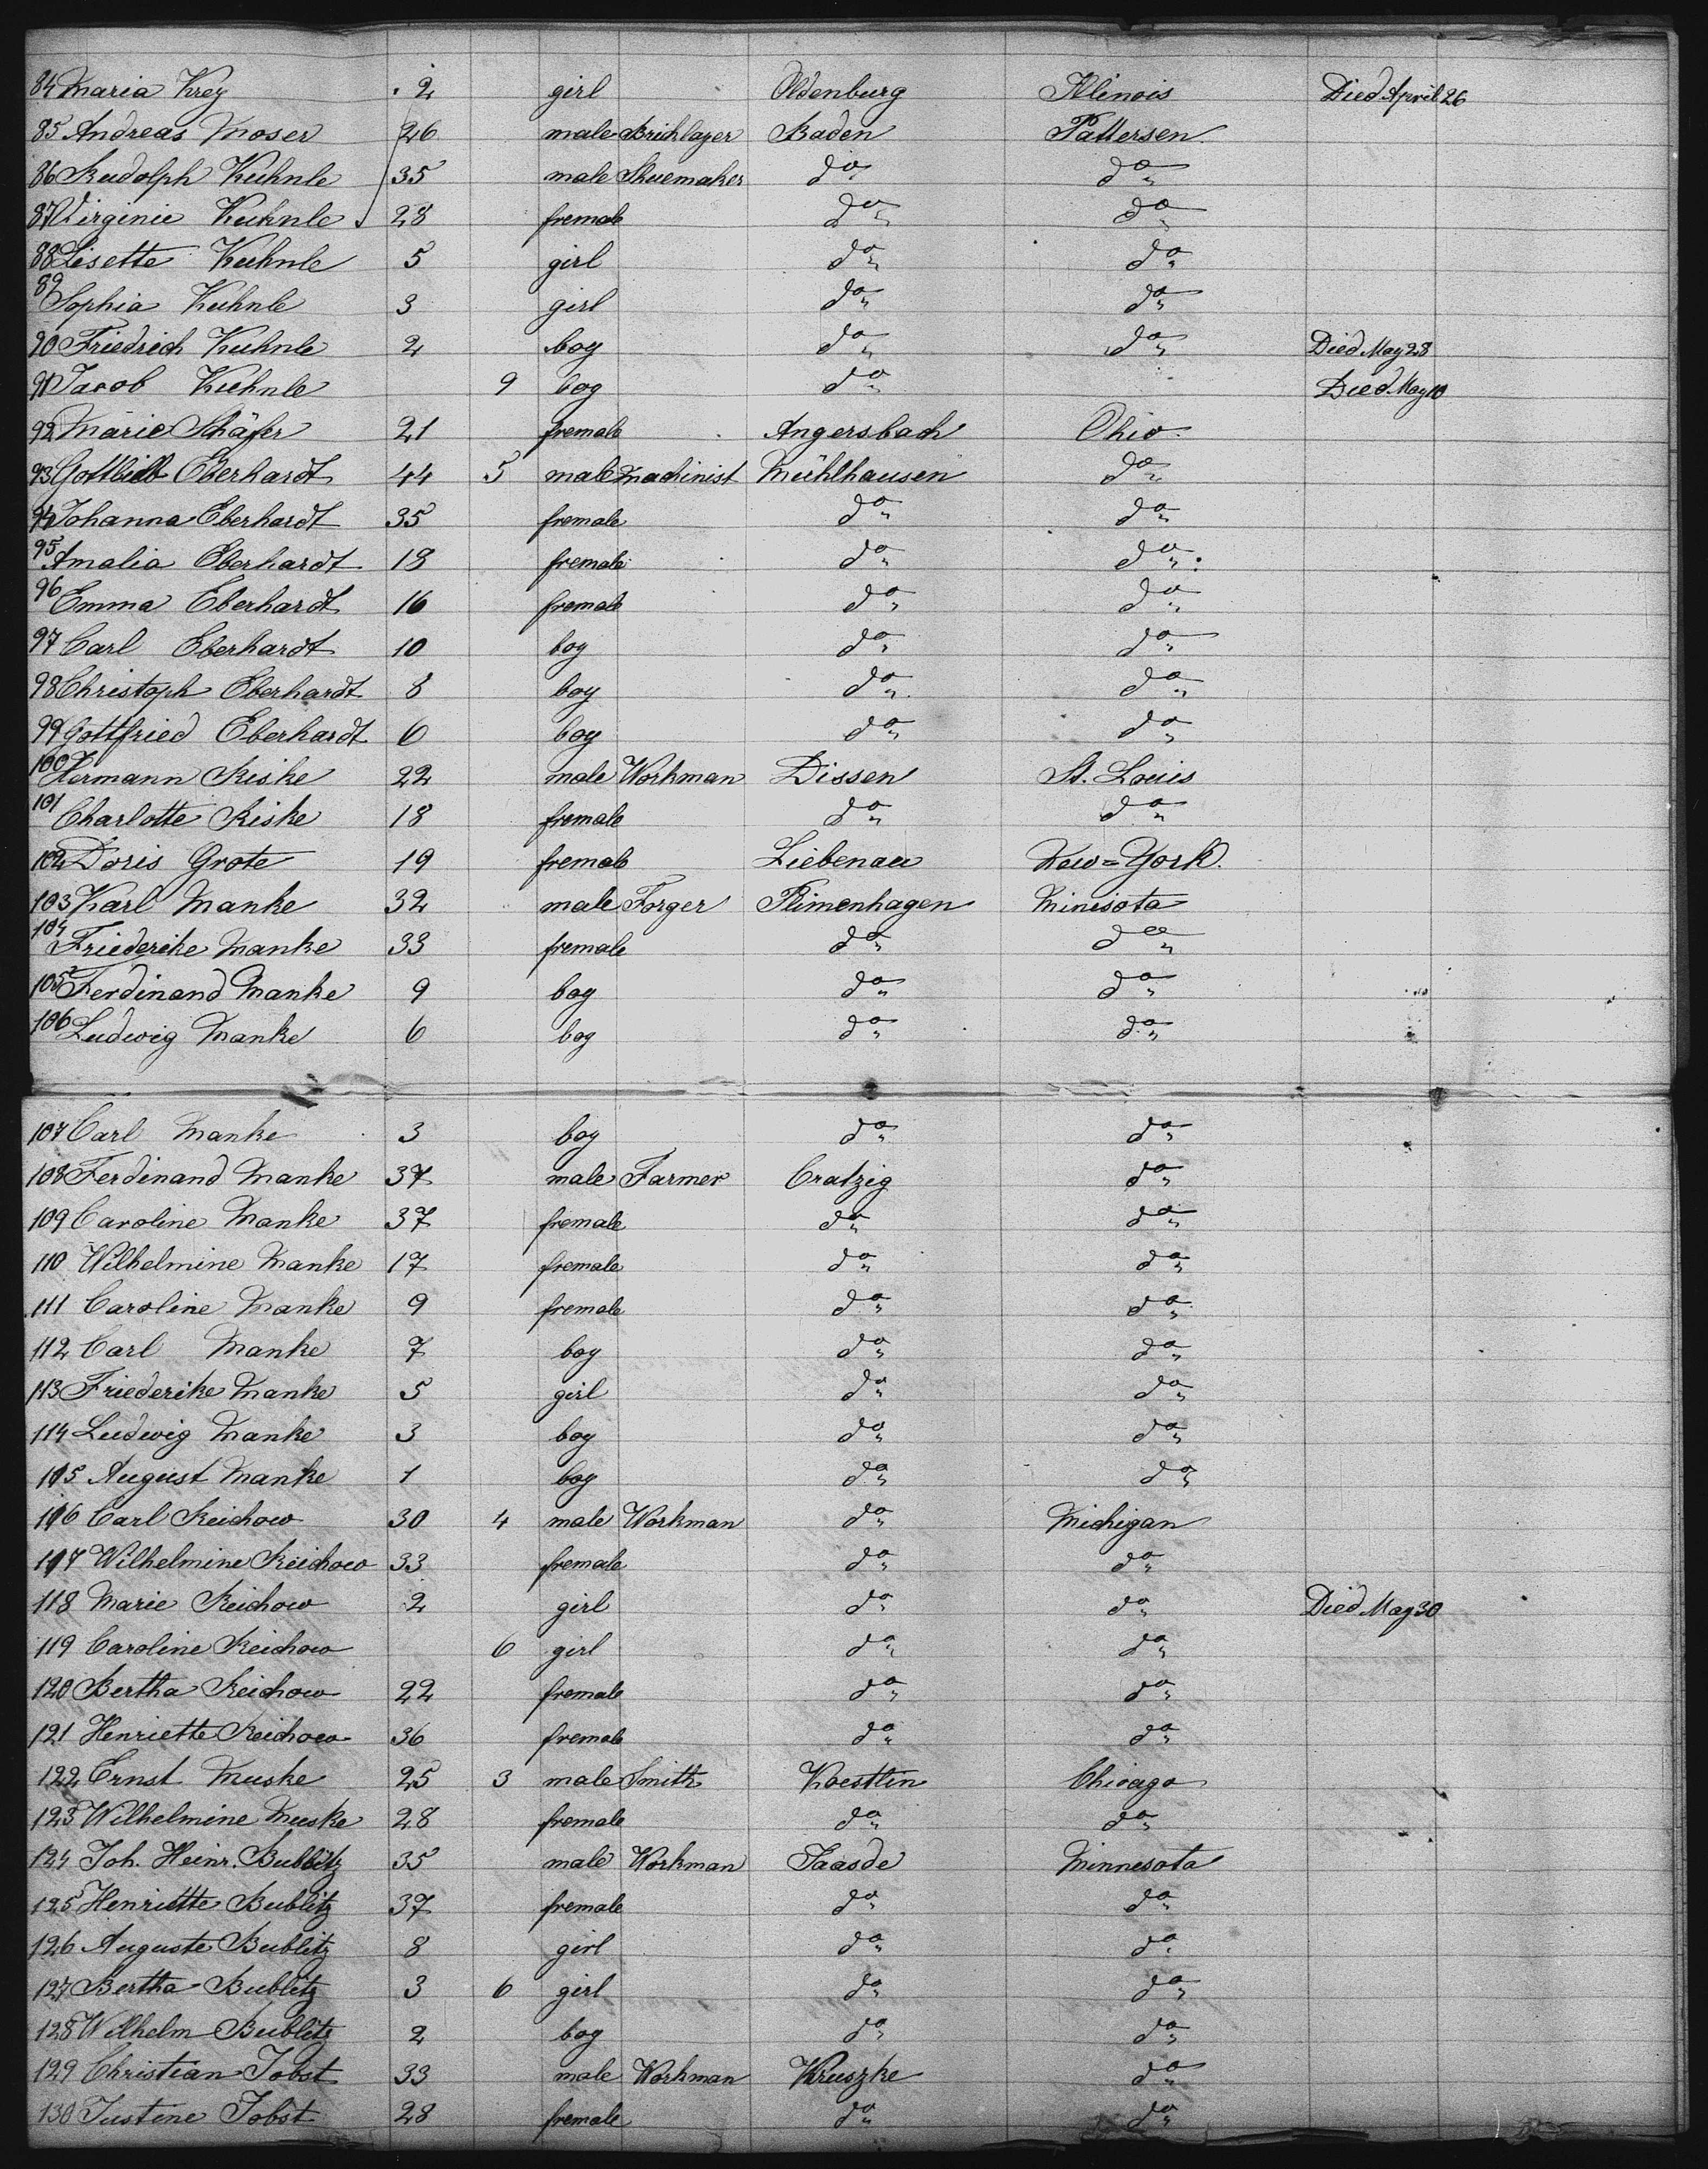 84 Maria Krey 2 girl Oldenburg Illinois Died April 26
85 Andreas Moser 26 male Brichlayer Baden Pattersen
86 Rudolph Kuhnle 35 male Shuemaker do do
87 Virginie Kuhnle 28 fremale do do
88 Lisette Kuhnle 5 girl do do
89 Sophia Kuhnle 3 girl do do
90 Friedrich Kuhnle 2 boy do do Died May 28
91 Jacob Kuhnle 9 boy do Died May 10
92 Marie Schäfer 21 fremale Angersbach Ohio
93 Gottlieb Eberhardt 44 5 male machinist Mühlhausen do
94 Johanna Eberhardt 35 fremale do do
95 Amalia Eberhardt 18 fremale do do
96 Emma Eberhardt 16 fremale do do
97 Carl Eberhardt 10 boy do do
98 Christoph Eberhardt 8 boy do do
99 Gottfried Eberhardt 6 boy do do
100 Hermann Riske 22 male Workman Dissen St. Louis
101 Charlotte Riske 18 fremale do do
102 Doris Grote 19 fremale Liebenau New=York.
103 Karl Manke 32 male Forger Plimenhagen Minisota
104 Friederike Manke 33 fremale do do
105 Ferdinand Manke 9 boy do do
106 Ludwig Manke 6 boy do do
107 Carl Manke 3 boy do do
108 Ferdinand Manke 37 male Farmer Cratzig do
109 Caroline Manke 37 fremale do do
110 Wilhelmine Manke 17 fremale do do
111 Caroline Manke 9 fremale do do
112 Carl Manke 7 boy do do
113 Friederike Manke 5 girl do do
114 Ludwig Manke 3 boy do do
115 August Manke 1 boy do do
116 Carl Reichow 30 4 male Workman do Michigan
117 Wilhelmine Reichow 33 fremale do do
118 Marie Reichow 2 girl do do Died May 30
119 Caroline Reichow 6 girl do do
120 Bertha Reichow 22 fremale do do
121 Henriette Reichow 36 fremale do do
122 Ernst Muske 25 3 male Smith Koestlin Chicago
123 Wilhelmine Muske 28 fremale do do
124 Joh. Heinr. Bublitz 35 male Workman Jaasde Minnesota
125 Henriette Bublitz 37 fremale do do
126 Auguste Bublitz 8 girl do do
127 Bertha Bublitz 3 6 girl do do
128 Wilhelm Bublitz 2 boy do do
129 Christian Jobst 33 male Workman Kruszke do
130 Justine Jobst 28 fremale do do